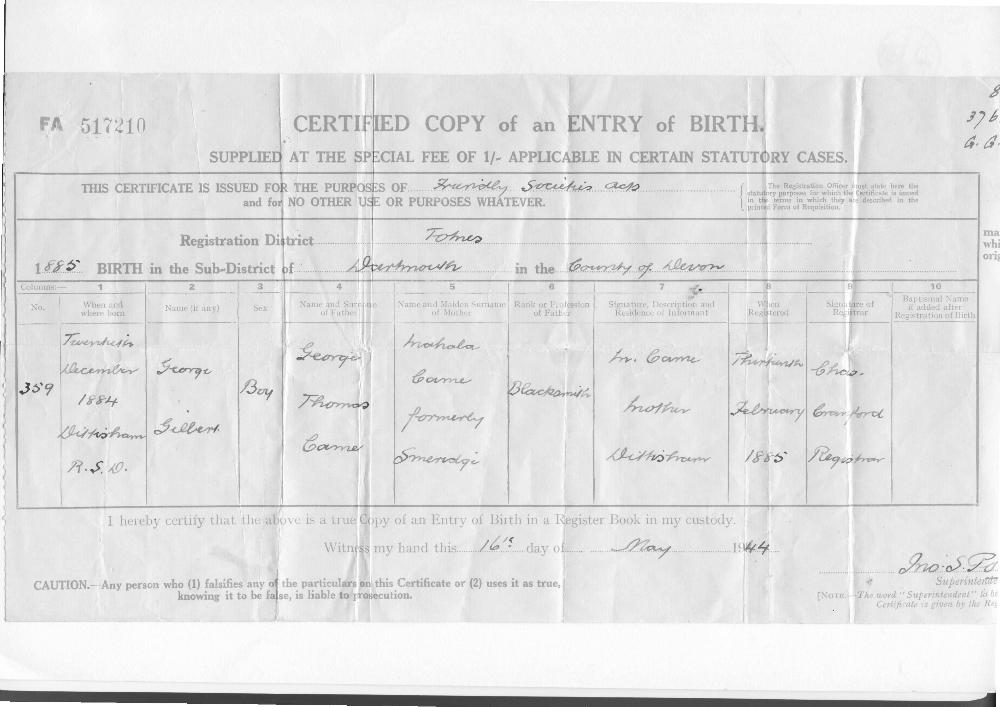 8
FA 517210
CERTIFIED COPY of an ENTRY of BIRTH.
376
G. G.
SUPPLIED AT THE SPECIAL FEE OF 1/- APPLICABLE IN CERTAIN STATUTORY CASES.
THIS CERTIFICATE IS ISSUED FOR THE PURPOSES OF Friendly Societies acts
and for NO OTHER USE OR PURPOSES WHATEVER.
The Registration Officer must state here the
statutory purposes for which the Certificate is issued
in the terms in which they are described in the
printed Form of Requisition.
Registration District Totnes
1885 BIRTH in the Sub-District of Dartmouth in the County of Devon
ma
whi
orig
Columns:— 1 2 3 4 5 6 7 8 9 10
No. When and where born Name (if any) Sex Name and Surname of Father Name and Maiden Surname of Mother Rank or Profession of Father Signature, Description and Residence of Informant When Registered Signature of Registrar Baptismal Name if added after Registration of Birth
359
Twentieth
December
1884
Dittisham
R.S.D.
George
Gilbert
Boy
George
Thomas
Came
Mahala
Came
formerly
Smeridge
Blacksmith
M. Came
Mother
Dittisham
Thirteenth
February
1885
Chas.
Cranford
Registrar
I hereby certify that the above is a true Copy of an Entry of Birth in a Register Book in my custody.
Witness my hand this 16th day of May 1944
CAUTION.—Any person who (1) falsifies any of the particulars on this Certificate or (2) uses it as true,
knowing it to be false, is liable to prosecution.
Jno. S. Po
Superintende
[NOTE.—The word "Superintendent" to be
Certificate is given by the Reg